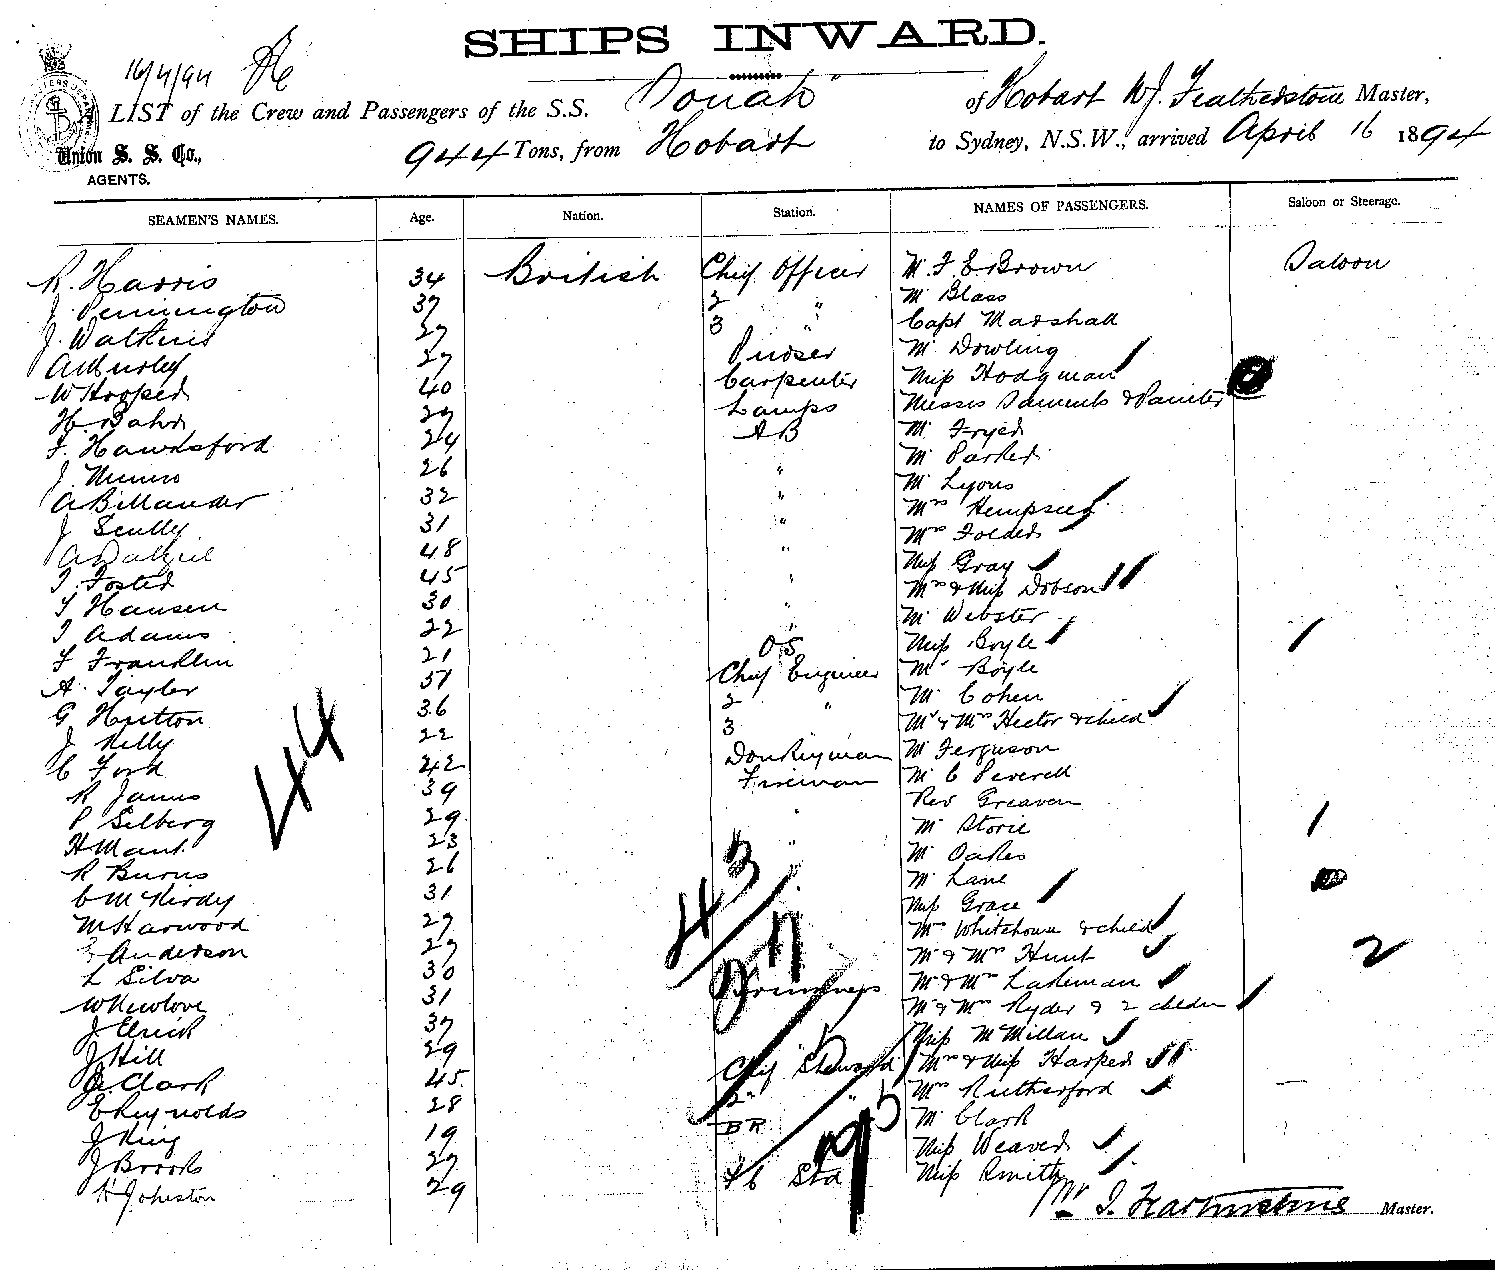 SHIPS INWARD.
16/4/94
LIST of the Crew and Passengers of the S.S. "Oonah" of Hobart W.J. Featherstone Master,
Union S. S. Co.,
AGENTS.
944 Tons, from Hobart to Sydney, N.S.W., arrived April 16 1894
SEAMEN'S NAMES. Age. Nation. Station. NAMES OF PASSENGERS. Saloon or Steerage.
R. Harris 34 British Chief Officer Mr F. E Brown Saloon
J. Pennington 37 2 " Mr Blass
J. Watkins 27 3 " Capt Marshall
27 Purser Mr Dowling
W Hooper 40 Carpenter Miss Hodgman
H. Bahr 27 Lamps Messrs & Painter
F. Hawksford 24 AB Mr Fryer
J. Munro 26 " Mr Parker
A Billander 32 " Mr Lyons
J Scully 31 " Mrs
A Dalziel 48 " Mrs Folder
T. Foster 45 " Miss Gray
T Hansen 30 " Mrs & Miss Dobson
T Adams 22 " Mr Webster
F Franklin 21 OS Miss Boyle
A. Taylor 37 Chief Engineer Mr Boyle
G Hutton 36 2 " Mr Cohen
J Kelly 22 3 Mr & Mrs Hector & child
C Ford 42 Donkeyman Mr Ferguson
R James 39 Fireman Mr C Peverell
P Selberg 29 " Rev Greaven
H Mant 23 " Mr Storie
R Burns 26 " Mr Oakes
C McKirdy 31 Mr Lane
M Harwood 27 Miss Grace
Anderson 27 Mrs Whitehouse & child
L Silva 30 Mr & Mrs Hunt 2
W Newlove 31 Trimmers Mr & Mrs Lakeman
J Elrick 37 Mr & Mrs Ryder & 2 children
J Hill 29 Miss McMillan
Clark 45 Chief Steward Mrs & Miss Harper
E Reynolds 28 2nd " Mrs Rutherford
J King 19 BR Mr Clark
J Brooks 27 Miss Weaver
H Johnston 29 F C Std Miss Smith
44
43
Master.